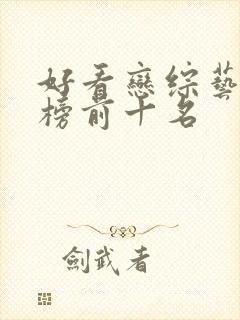 好看戀綜藝
榜前十名
劍武者